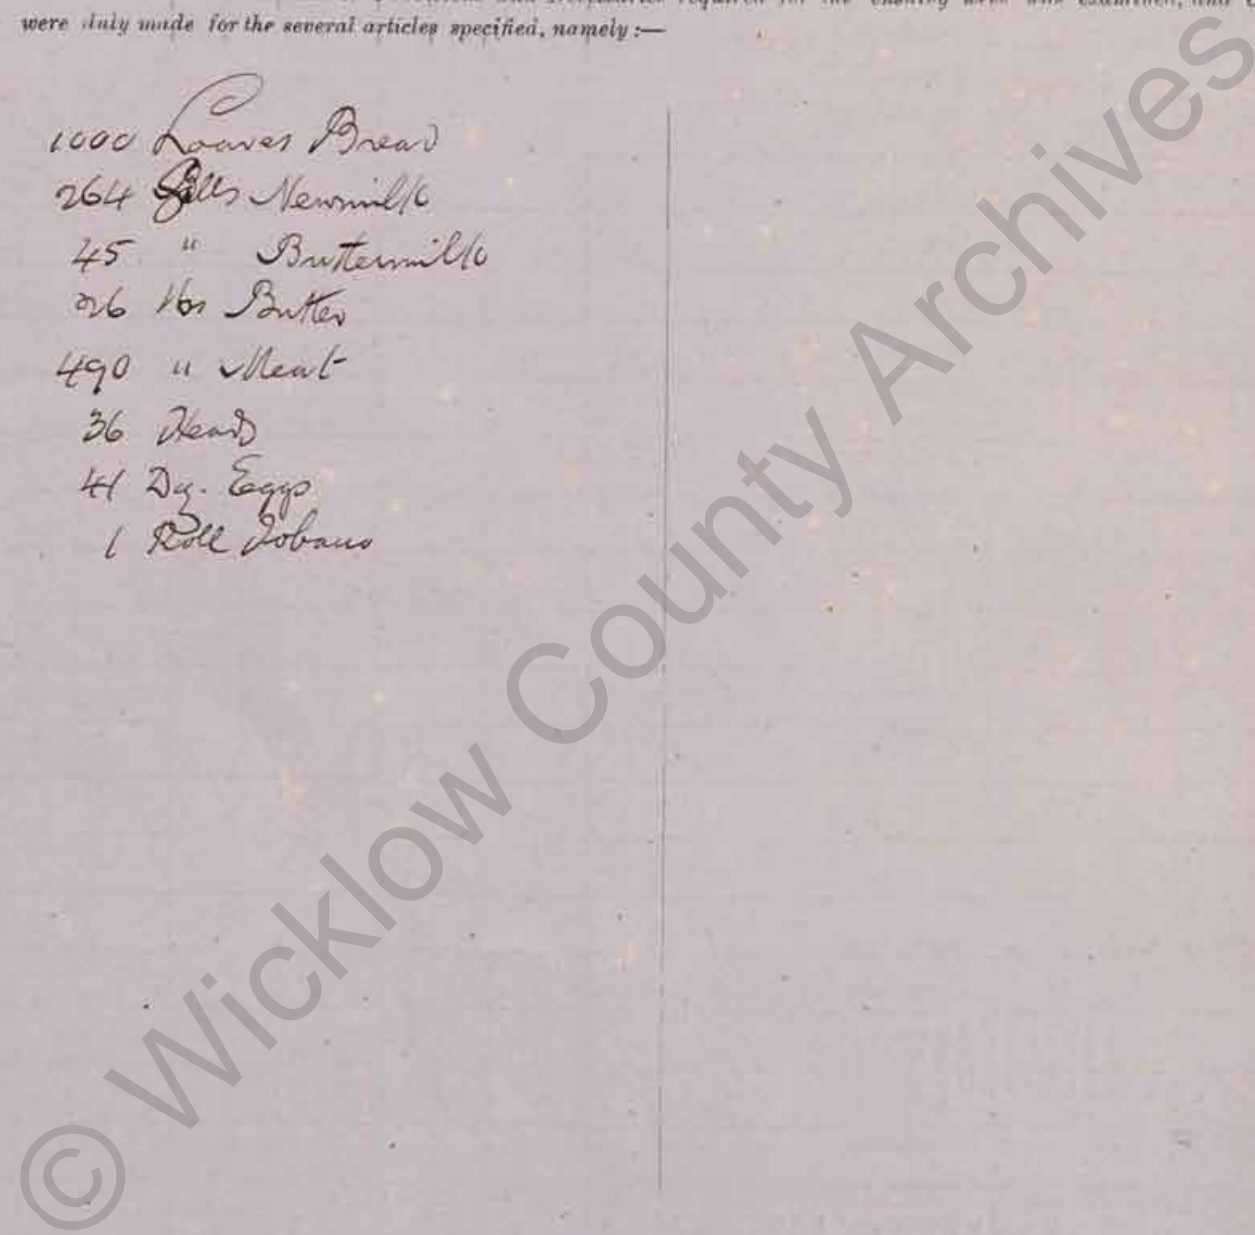 required for the ensuing week was examined, and
were duly made for the several articles specified, namely :—
1000 Loaves Bread
264 Galls Newmilk
45 " Buttermilk
26 lbs Butter
490 " Meat
36 Heads
41 Dz. Eggs
1 Roll Tobacco
© Wicklow County Archives